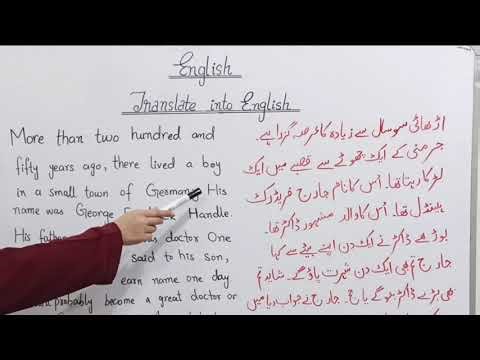 English
Translate into English
More than two hundred and
fifty years ago, there lived a boy
in a small town of Germany. His
name was George Handle.
His doctor One
said to his son,
earn name one day
probably become a great doctor or
اڑھائی سو سال سے زیادہ کا عرصہ گزرا ہے۔
جرمنی کے ایک چھوٹے سے قصبے میں ایک
لڑکا رہتا تھا۔ اُس کا نام جارج فریڈرک
ہینڈل تھا۔ اُس کا والد مشہور ڈاکٹر تھا۔
بوڑھے ڈاکٹر نے ایک دن اپنے بیٹے سے کہا
جارج تم بھی ایک دن شہرت پاؤ گے۔ شاید تم
بھی بڑے ڈاکٹر بنو گے یا جج۔ جارج نے جواب دیا میں